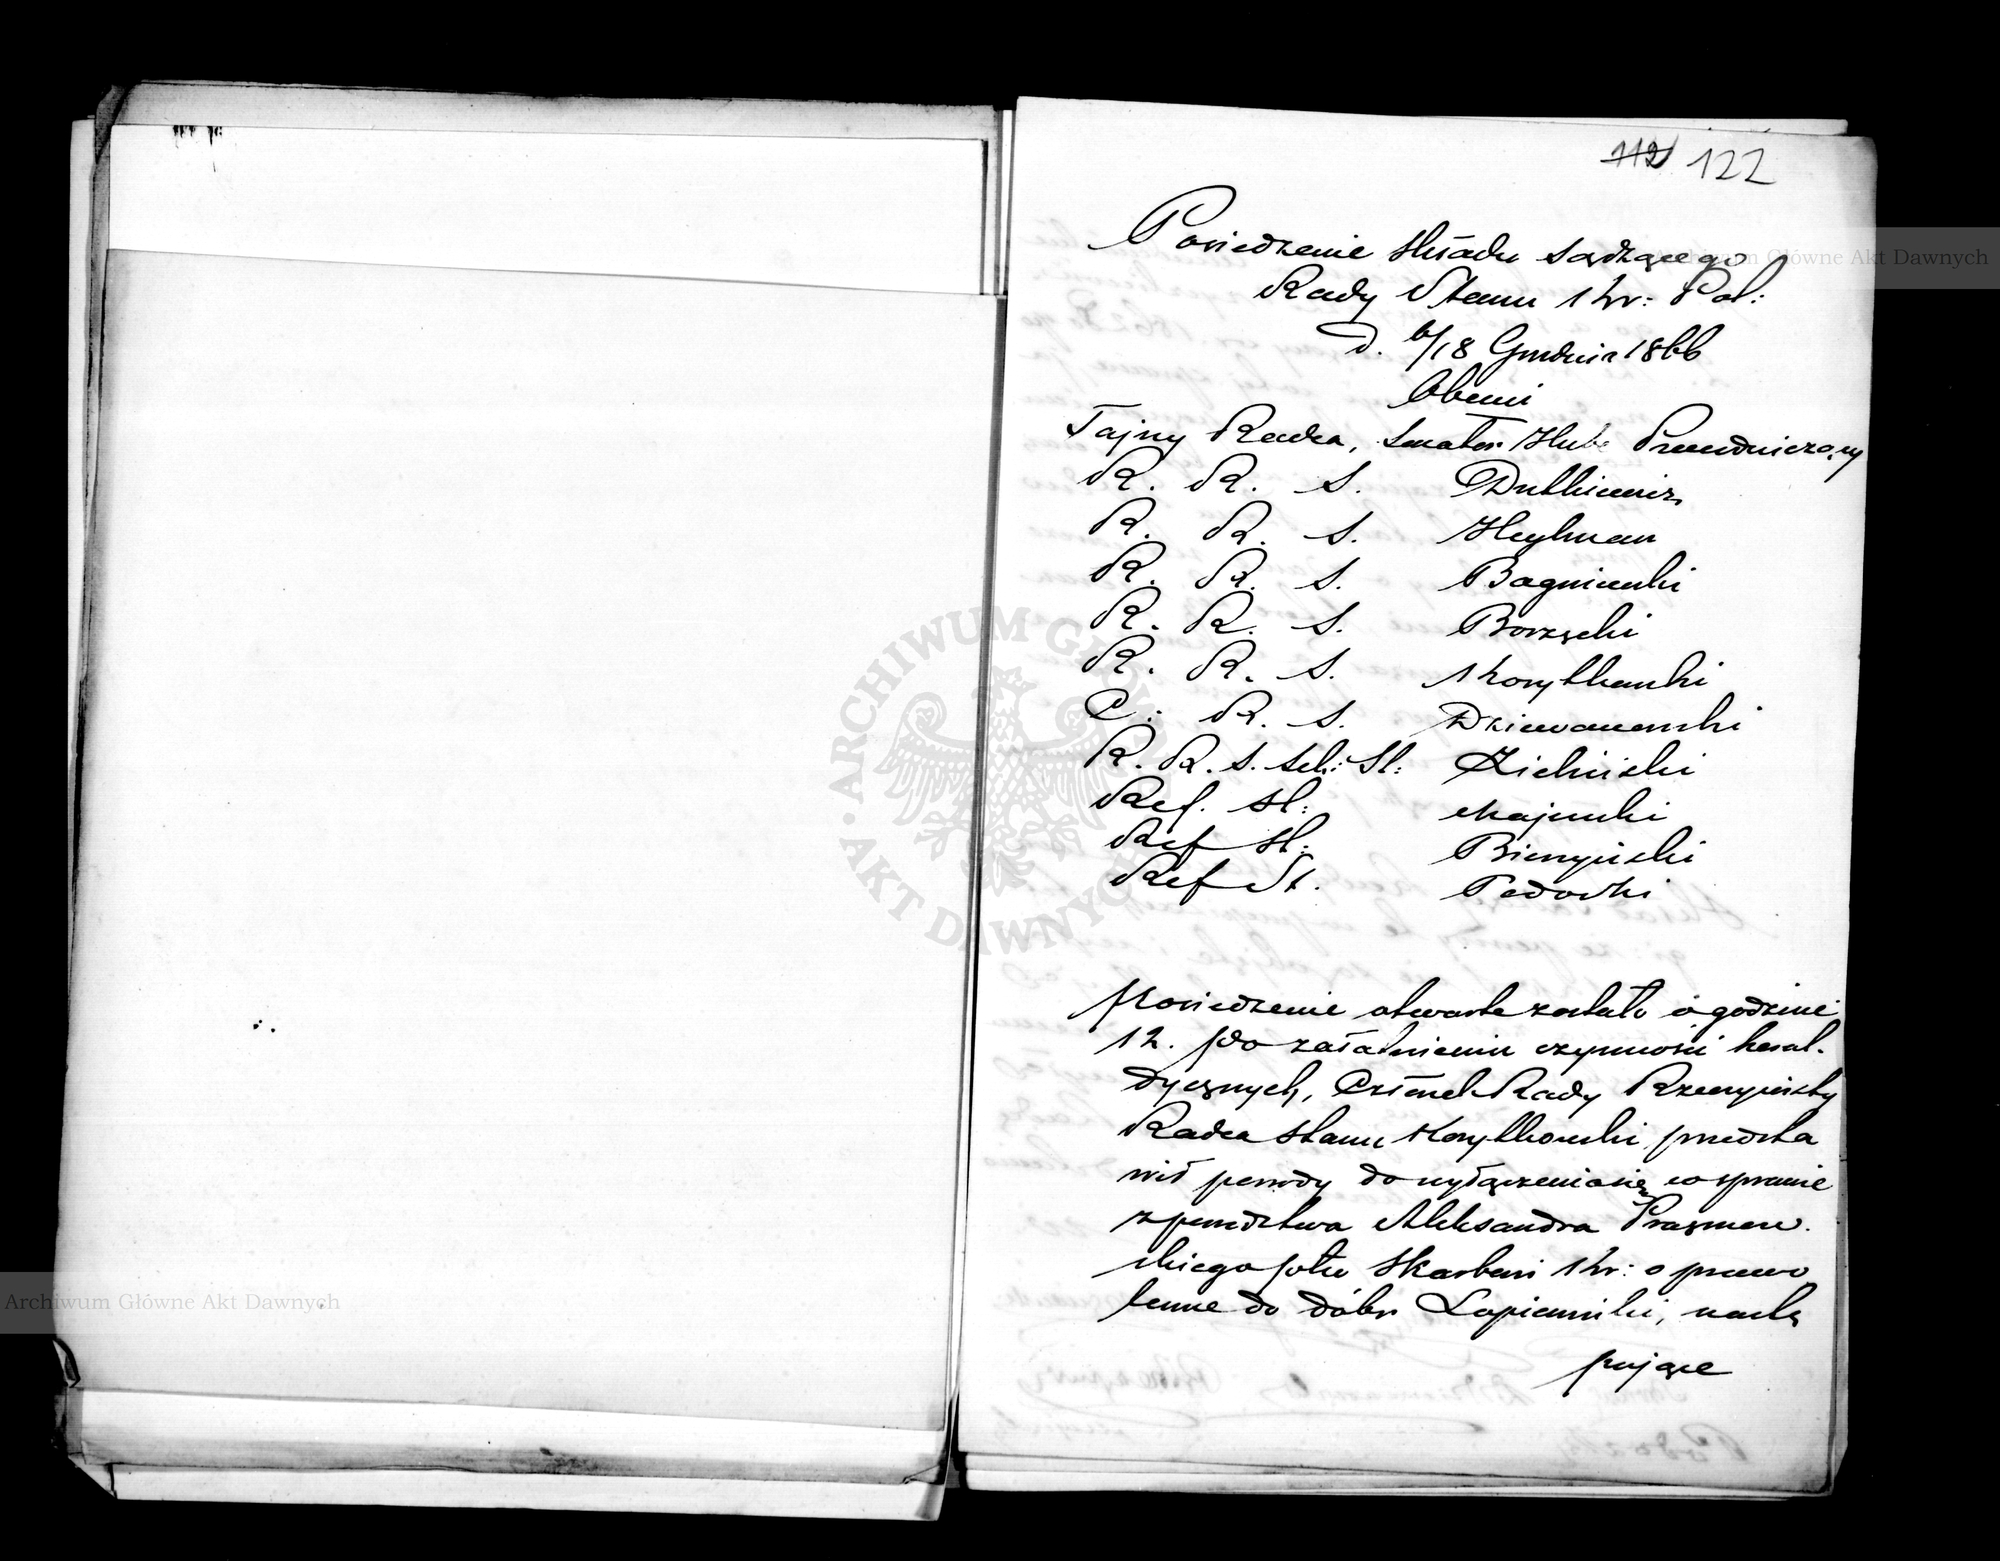 112 122
Posiedzenie składu sądzącego
Rady Stanu Kr: Pol:
d. 6/18 Grudnia 1866
Obecni
Tajny Radca, Senator Hube Prezydujący
R. R. S. Dutkiewicz
R. R. S. Heylman
R. R. S. Bagniewski
R. R. S. Borzęcki
R. R. S. Korytkowski
C: R. S. Dziewanowski
R. R. S. Sek: St: Zieliński
Ref. St: Majewski
Ref St: Bieczyński
Ref St. Podoski
Posiedzenie otwarte zostało o godzinie
12. po załatwieniu czynności heral-
dycznych, Członek Rady Rzeczywisty
Radca Stanu Korytkowski przedsta
wił powody do wyłączenia się w sprawie
z powództwa Aleksandra Prażmow-
skiego pko Skarbowi Kr: o prawo
do dóbr Łopiennik, nastę
pujące
Archiwum Główne Akt Dawnych
Archiwum Główne Akt Dawnych
ARCHIWUM GŁÓWNE AKT DAWNYCH